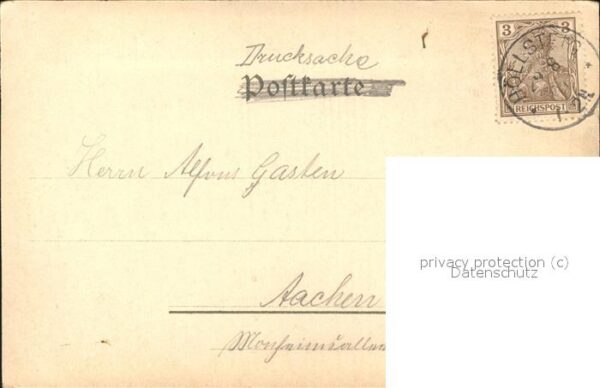 Drucksache
Postkarte
3 3
REICHSPOST
Herrn Alfons Gasten
privacy protection (c)
Datenschutz
Aachen